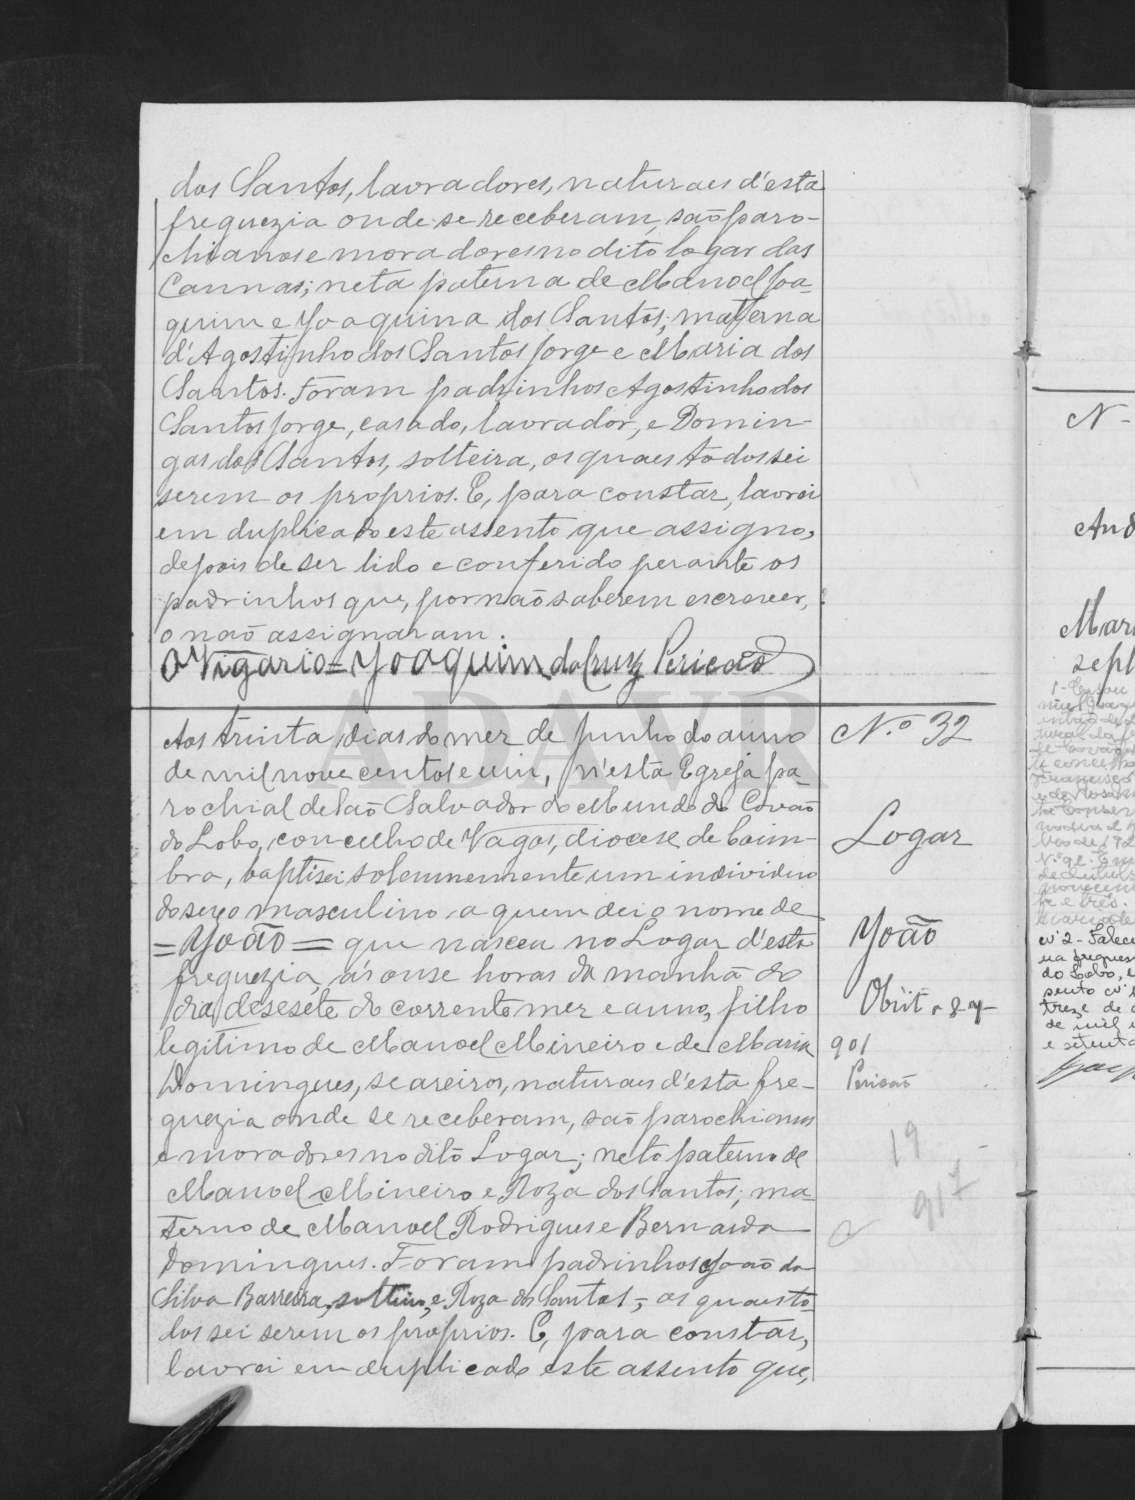 dos Santos, lavradores, naturaes d'esta
freguezia onde se receberam, são paro-
chianos e moradores no dito logar das
Cannas; neta paterna de Manoel Joa-
quim e Joaquina dos Santos; materna
d'Agostinho dos Santos Jorge e Maria dos
Santos. Foram padrinhos Agostinho dos
Santos Jorge, casado, lavrador, e Domin-
gas dos Santos, solteira, os quaes todos sei
serem os proprios. E, para constar, lavrei
em duplicado este assento que assigno,
depois de ser lido e conferido perante os
padrinhos que, por não saberem escrever,
o não assignaram.
O Vigario = Joaquim da Cruz Pericão
ADAVR
Aos trinta dias do mez de Junho do anno
de mil nove centos e um, n'esta Egreja pa-
rochial de São Salvador do Mundo do Covão
do Lobo, concelho de Vagos, diocese de Coim-
bra, baptisei solemnemente um individuo
do sexo masculino a quem dei o nome de
= João = que nasceu no Logar d'esta
freguezia, ás onse horas da manhã do
dia desesete do corrente mez e anno, filho
legitimo de Manoel Mineiro e de Maria
Domingues, seareiros, naturaes d'esta fre-
guezia onde se receberam, são parochianos
e moradores no dito Logar; neto paterno de
Manoel Mineiro e Roza dos Santos; ma-
terno de Manoel Rodrigues e Bernarda
Domingues. Foram padrinhos João da
Silva Barreira, solteiro, e Roza dos Santos, os quaes to-
dos sei serem os proprios. E, para constar,
lavrei em duplicado este assento que,
N.º 32
Logar
João
Obiit
901
Pericão
19
917
N -
And
Mari
sept